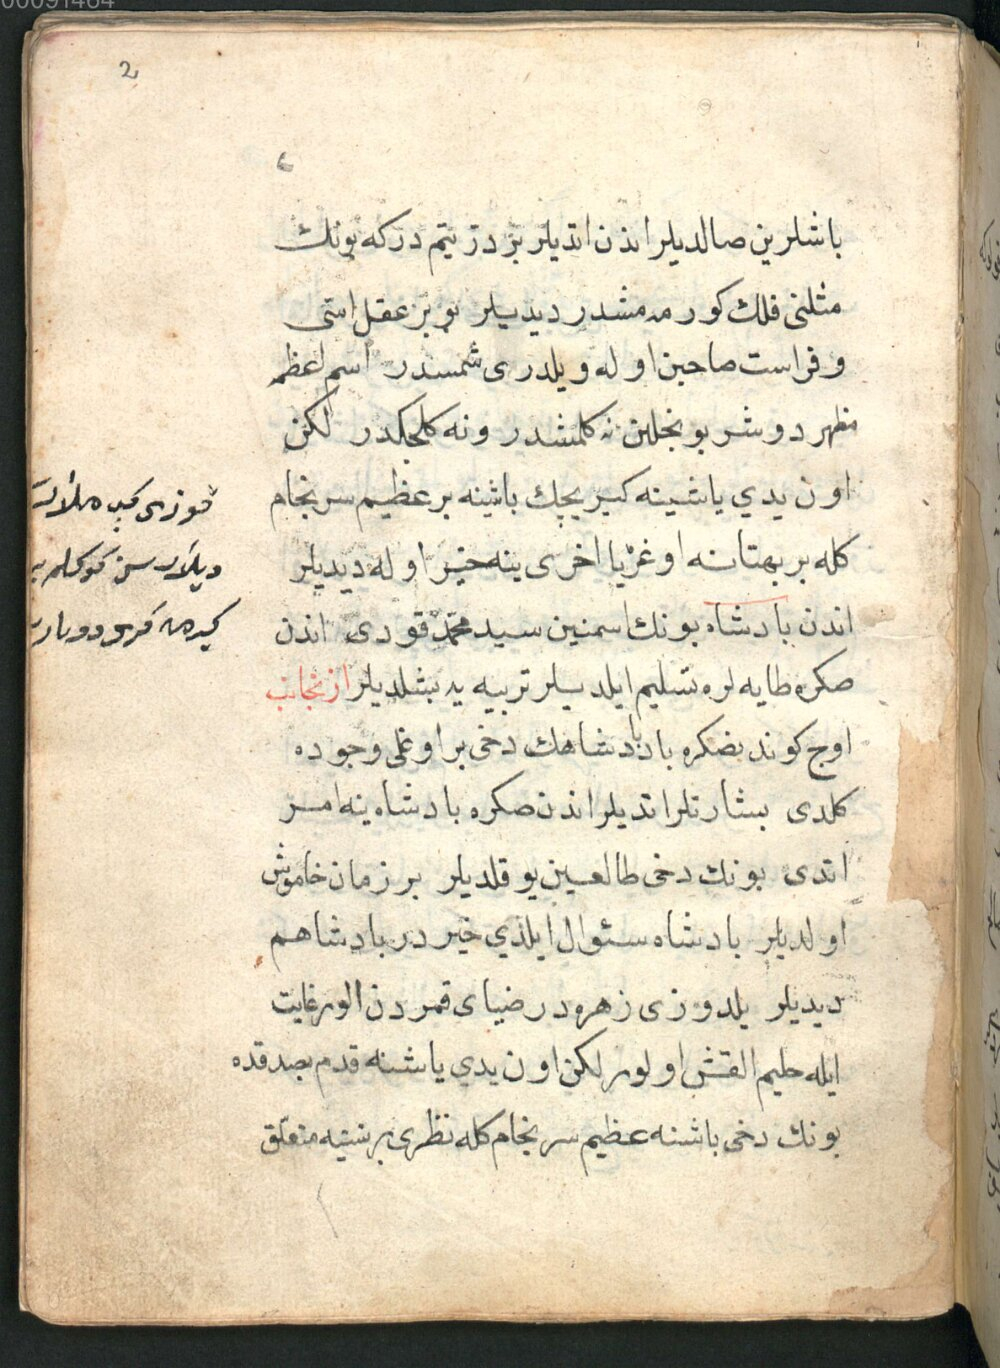 2
باشلرین صالدیلر اندن اتدیلر بر در یتیم در که بونك
مثلنی فلك کورمه مشدر دیدیلر بو بر عقل استی
و فراست صاحبن اوله و یلدزی شمسدر اسم اعظم
مظهر دوشر بو نجلین نه کلمشدر و نه کلجکدر لکن
اون یدي یاشینه کیریجك باشینه بر عظیم سرنجام
کله بر بهتانه اوغریا اخری ینه خیر اوله دیدیلر
اندن بادشاه بونك اسمنین سید محمد قودی اندن
صکره طایه لره تسلیم ایلدیلر تربیه یه بشلدیلر از نجانب
اوج کوندنصکره بادشاهك دخی بر اوغلی وجوده
کلدی بشارتلر اتدیلر اندن صکره بادشاه ینه امر
اتدی بونك دخی طالعین یوقلدیلر بر زمان خاموش
اولدیلر بادشاه سئوال ایلدي خیر در بادشاهم
دیدیلر یلدوزی زهره در ضیای قمردن الور غایت
ایله حلیم القش اولور لکن اون یدي یاشنه قدم بصدقده
بونك دخی باشنه عظیم سرنجام کله نظری بر شیئه متعلق